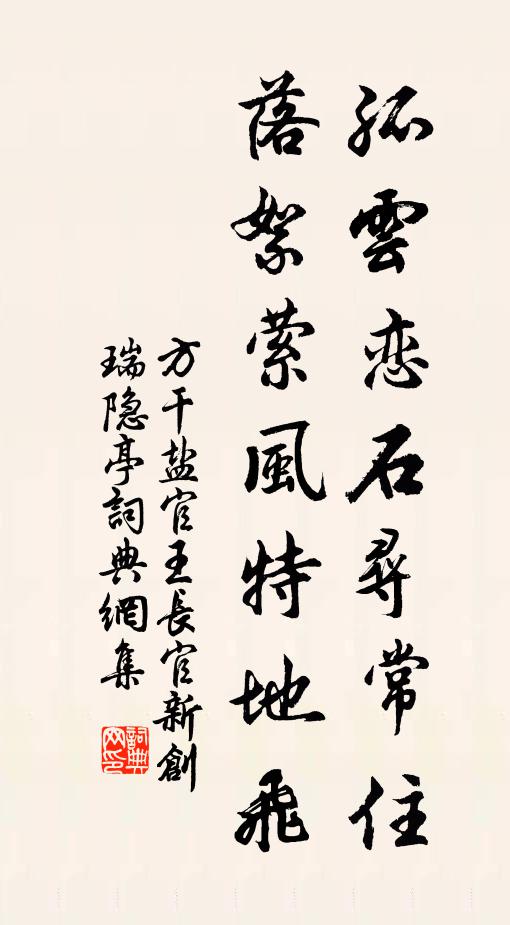 孤雲恋石尋常住
落絮萦風特地飛
方干盐官王長官新創
瑞隐亭詞典網集
詞典网印